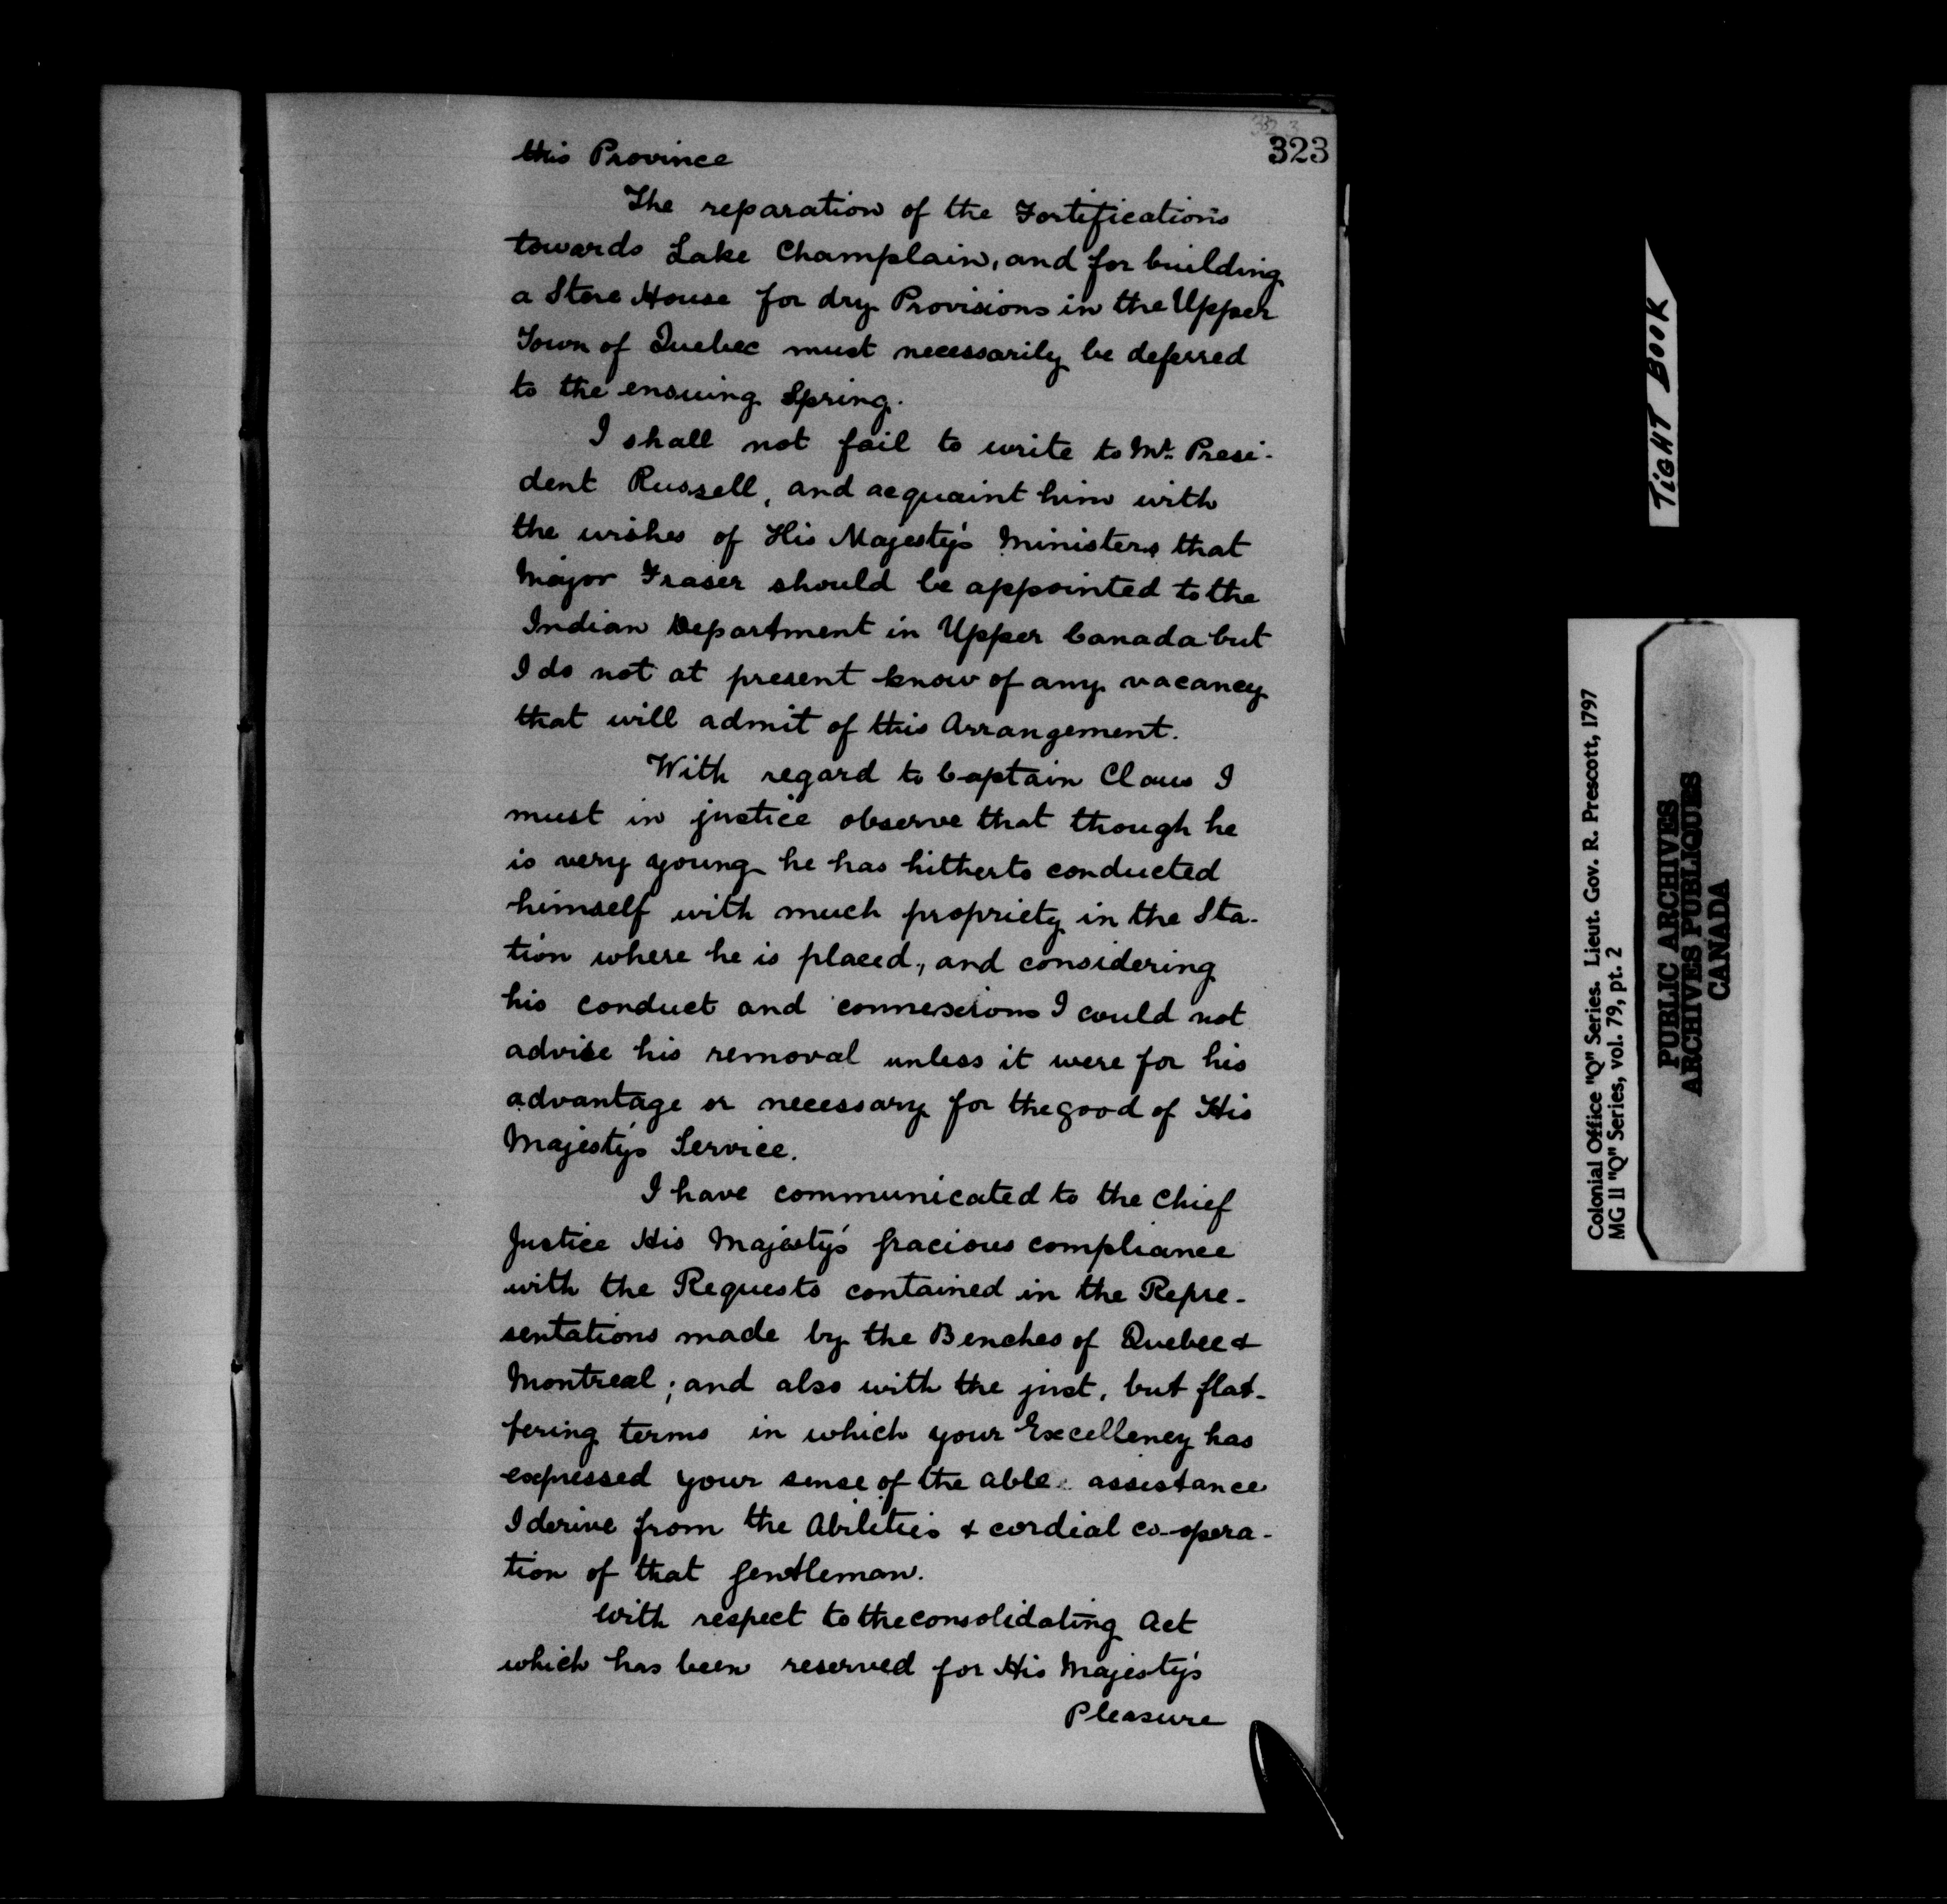 323
323
this Province
The reparation of the Fortifications
towards Lake Champlain, and for building
a Store House for dry Provisions in the Upper
Town of Quebec must necessarily be deferred
to the ensuing Spring.
I shall not fail to write to Mr. Presi-
dent Russell, and acquaint him with
the wishes of His Majesty's Ministers that
Major Fraser should be appointed to the
Indian Department in Upper Canada but
I do not at present know of any vacancy
that will admit of this Arrangement.
With regard to Captain Claus I
must in justice observe that though he
is very young he has hitherto conducted
himself with much propriety in the Sta-
tion where he is placed, and considering
his conduct and connexions I could not
advise his removal unless it were for his
advantage or necessary for the good of His
Majesty's Service.
I have communicated to the Chief
Justice His Majesty's gracious compliance
with the Requests contained in the Repre-
sentations made by the Benches of Quebec &
Montreal; and also with the just, but flat-
tering terms in which your Excellency has
expressed your sense of the able assistance
I derive from the Abilities & cordial co-opera-
tion of that gentleman.
With respect to the consolidating Act
which has been reserved for His Majesty's
Pleasure
TIGHT BOOK
Colonial Office "Q" Series. Lieut. Gov. R. Prescott, 1797
MG 11 "Q" Series, vol. 79, pt. 2
PUBLIC ARCHIVES
ARCHIVES PUBLIQUES
CANADA